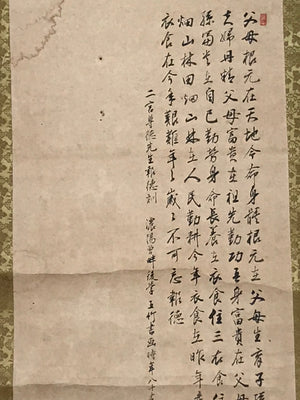 父母根元在天地令命身體根元在父母生育子孫
夫婦丹精父母富貴在祖先勤功吾身富貴在父母
孫富貴在自己勤勞身命長養在衣食住三衣食住
畑山林田畑山林在人民勤耕今年衣食在昨年
衣食在今年艱難年々歳々不可忘報徳
二宮尊徳先生報徳訓 濃陽 後学玉竹書 時年八十